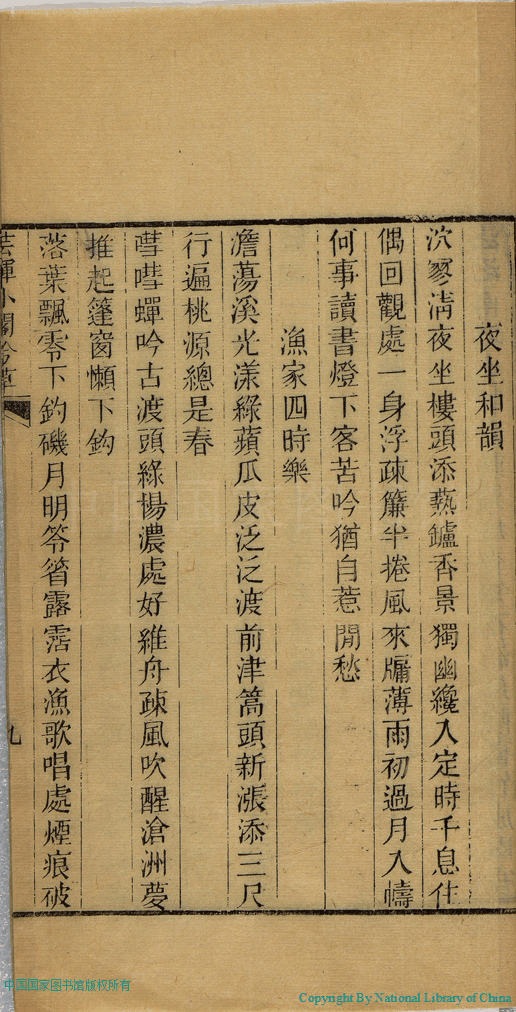 夜坐和韻
泬寥淸夜坐樓頭添爇鑪香景獨幽纔入定時千息住
偶回觀處一身浮疎簾半捲風來牖薄雨初過月入幬
何事讀書燈下客苦吟猶自惹閒愁
漁家四時樂
澹蕩溪光漾綠蘋瓜皮泛泛渡前津篙頭新漲添三尺
行遍桃源總是春
嘒嘒蟬吟古渡頭綠楊濃處好維舟疎風吹醒滄洲夢
推起篷窗懶下鈎
落葉飄零下釣磯月明笭箵露霑衣漁歌唱處煙痕破
芸暉小閣吟草
九
中国国家图书馆版权所有
Copyright By National Library of China